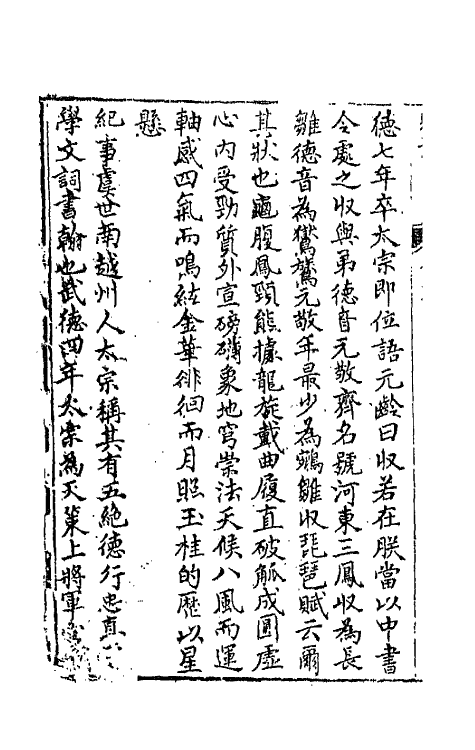 德七年卒太宗即位語元齡曰收若在朕當以中書
令處之收與弟德音元敬齊名號河東三鳳收為長
雛德音為鸑鷟元敬年最少為鵷雛收琵琶賦云爾
其狀也龜腹鳳頸熊據龍旋戴曲履直破觚成圓虛
心內受勁質外宣磅礴象地穹崇法天候八風而運
軸感四氣而鳴絃金華徘徊而月照玉桂的歷以星
懸
紀事虞世南越州人太宗稱其有五絕德行忠直
學文詞書翰也武德四年太宗為天策上將軍